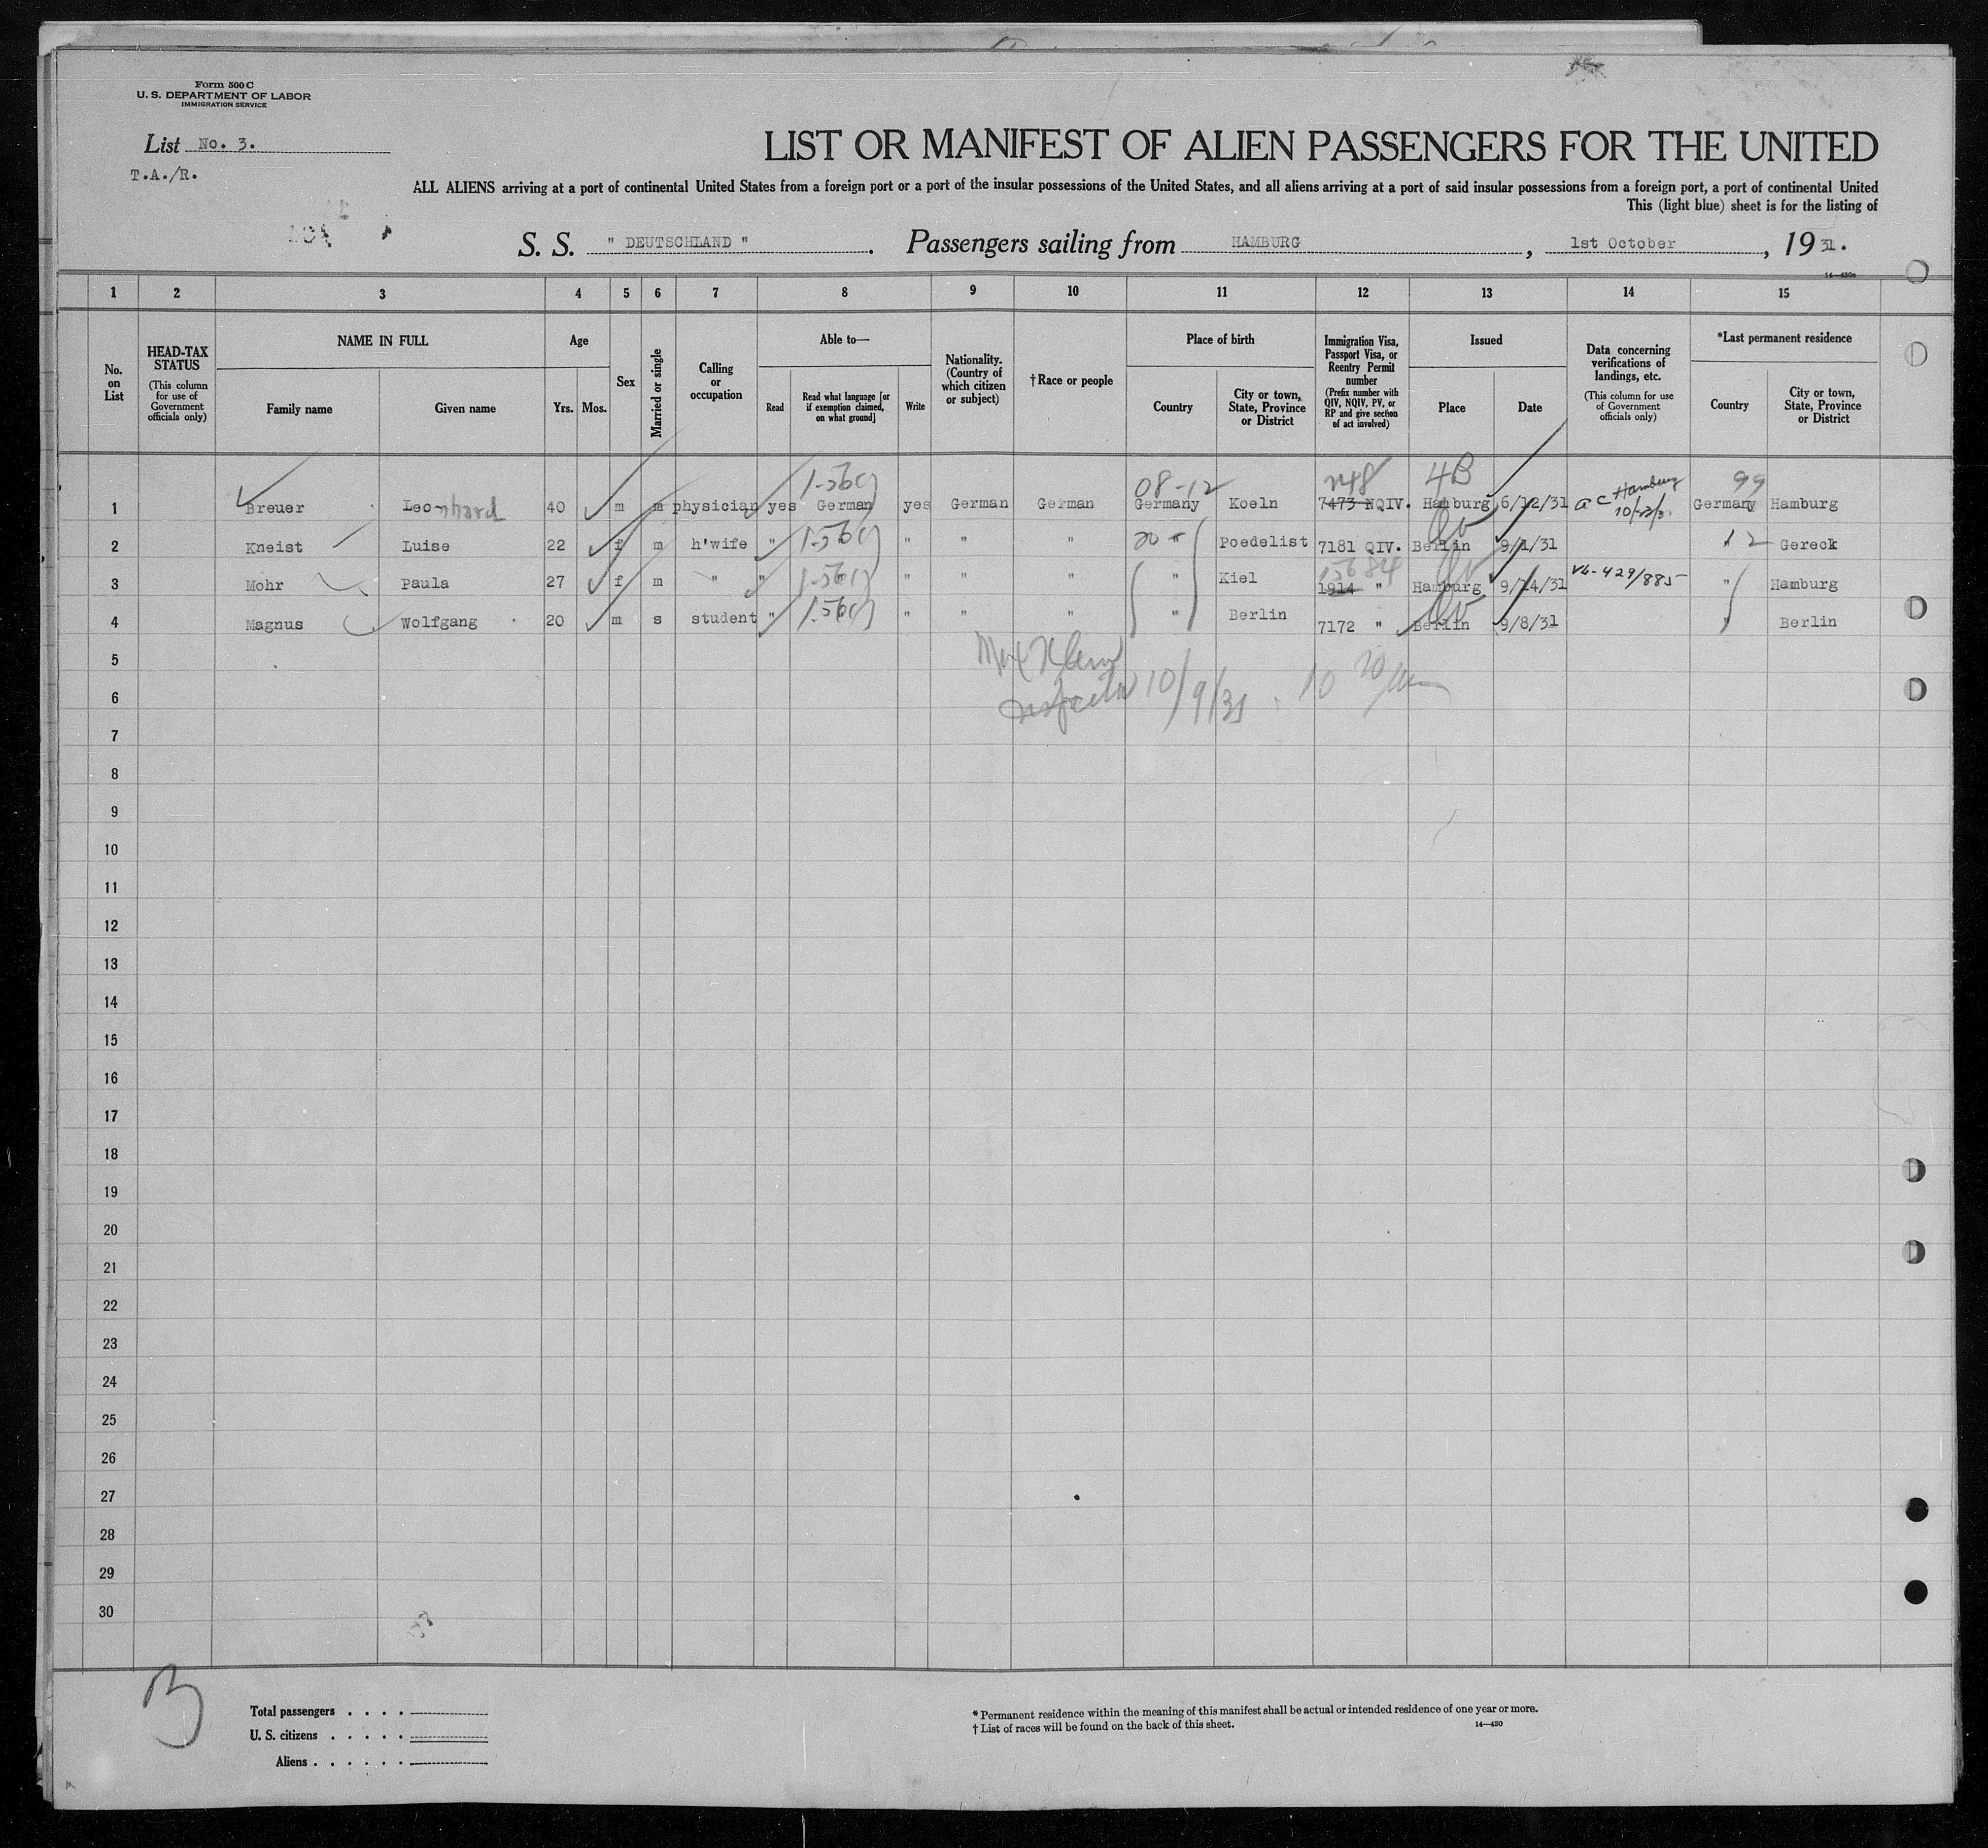 Form 500 C
U. S. DEPARTMENT OF LABOR
IMMIGRATION SERVICE
List No. 3.
T.A./R.
LIST OR MANIFEST OF ALIEN PASSENGERS FOR THE UNITED
ALL ALIENS arriving at a port of continental United States from a foreign port or a port of the insular possessions of the United States, and all aliens arriving at a port of said insular possessions from a foreign port, a port of continental United
This (light blue) sheet is for the listing of
S. S. " DEUTSCHLAND ". Passengers sailing from HAMBURG, 1st October, 19 31.
14—430a
1 2 3 4 5 6 7 8 9 10 11 12 13 14 15
No. on List
HEAD-TAX STATUS (This column for use of Government officials only)
NAME IN FULL
Family name Given name
Age
Yrs. Mos.
Sex
Married or single
Calling or occupation
Able to—
Read Read what language [or if exemption claimed, on what ground] Write
Nationality. (Country of which citizen or subject)
† Race or people
Place of birth
Country City or town, State, Province or District
Immigration Visa, Passport Visa, or Reentry Permit number (Prefix number with QIV, NQIV, PV, or RP and give section of act involved)
Issued
Place Date
Data concerning verifications of landings, etc. (This column for use of Government officials only)
*Last permanent residence
Country City or town, State, Province or District
08-12 4B 99
1 Breuer Leonhard 40 m m physician yes German yes German German Germany Koeln 7473 NQIV. Hamburg 6/12/31 Hamburg Germany Hamburg
2 Kneist Luise 22 f m h'wife " " " " Poedelist 7181 QIV. Berlin 9/1/31 " 12 Gereck
3 Mohr Paula 27 f m " " " " " " Kiel 1914 " Hamburg 9/14/31 V6-429/885 " Hamburg
4 Magnus Wolfgang 20 m s student " " " " " Berlin 7172 " Berlin 9/8/31 " Berlin
5
6 10/9/31
7
8
9
10
11
12
13
14
15
16
17
18
19
20
21
22
23
24
25
26
27
28
29
30
3
Total passengers . . . .
U. S. citizens . . . . .
Aliens . . . . . .
* Permanent residence within the meaning of this manifest shall be actual or intended residence of one year or more.
† List of races will be found on the back of this sheet.
14—430